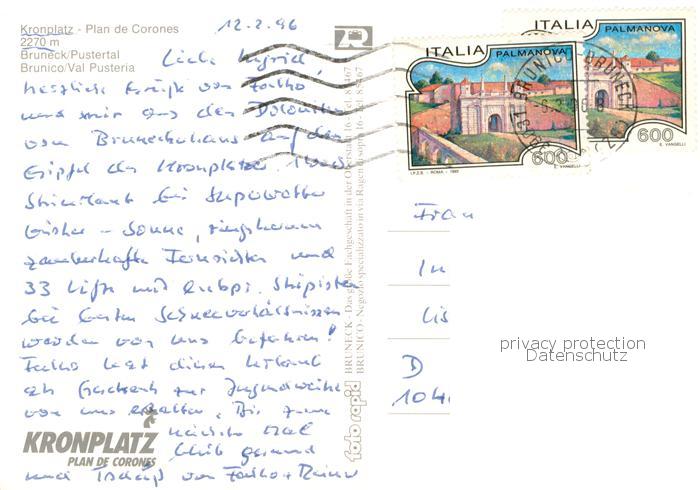 Kronplatz - Plan de Corones
2270 m
Bruneck/Pustertal
Brunico/Val Pusteria
12.2.96
Liebe Ingrid,
herzliche Grüße von Falko
und mir aus den Dolomiten
vom Brunecker Haus auf dem
Gipfel des Kronplatzes.
bei Superwetter
bisher - Sonne, ringsherum
zauberhafte Fernsichten und
33 Lifte mit Skipisten
bei besten Schneeverhältnissen
werden von uns befahren!
Falko hat diesen Urlaub
als Geschenk zur Jugendweihe
von uns erhalten. Bis zum
nächsten Mal
bleib gesund
und von Falko + Rainer
KRONPLATZ
PLAN DE CORONES
foto rapid
BRUNECK - Das große Fachgeschäft in der Ob
BRUNICO - Negozio specializzato in via Ragen di sopra 16 - Tel. 85467
R
ITALIA PALMANOVA
600
I.P.Z.S. - ROMA - 1993 E. VANGELLI
ITALIA PALMANOVA
600
E. VANGELLI
BRUNICO - BRUNECK
Frau
In
Lis
D
104
privacy protection
Datenschutz